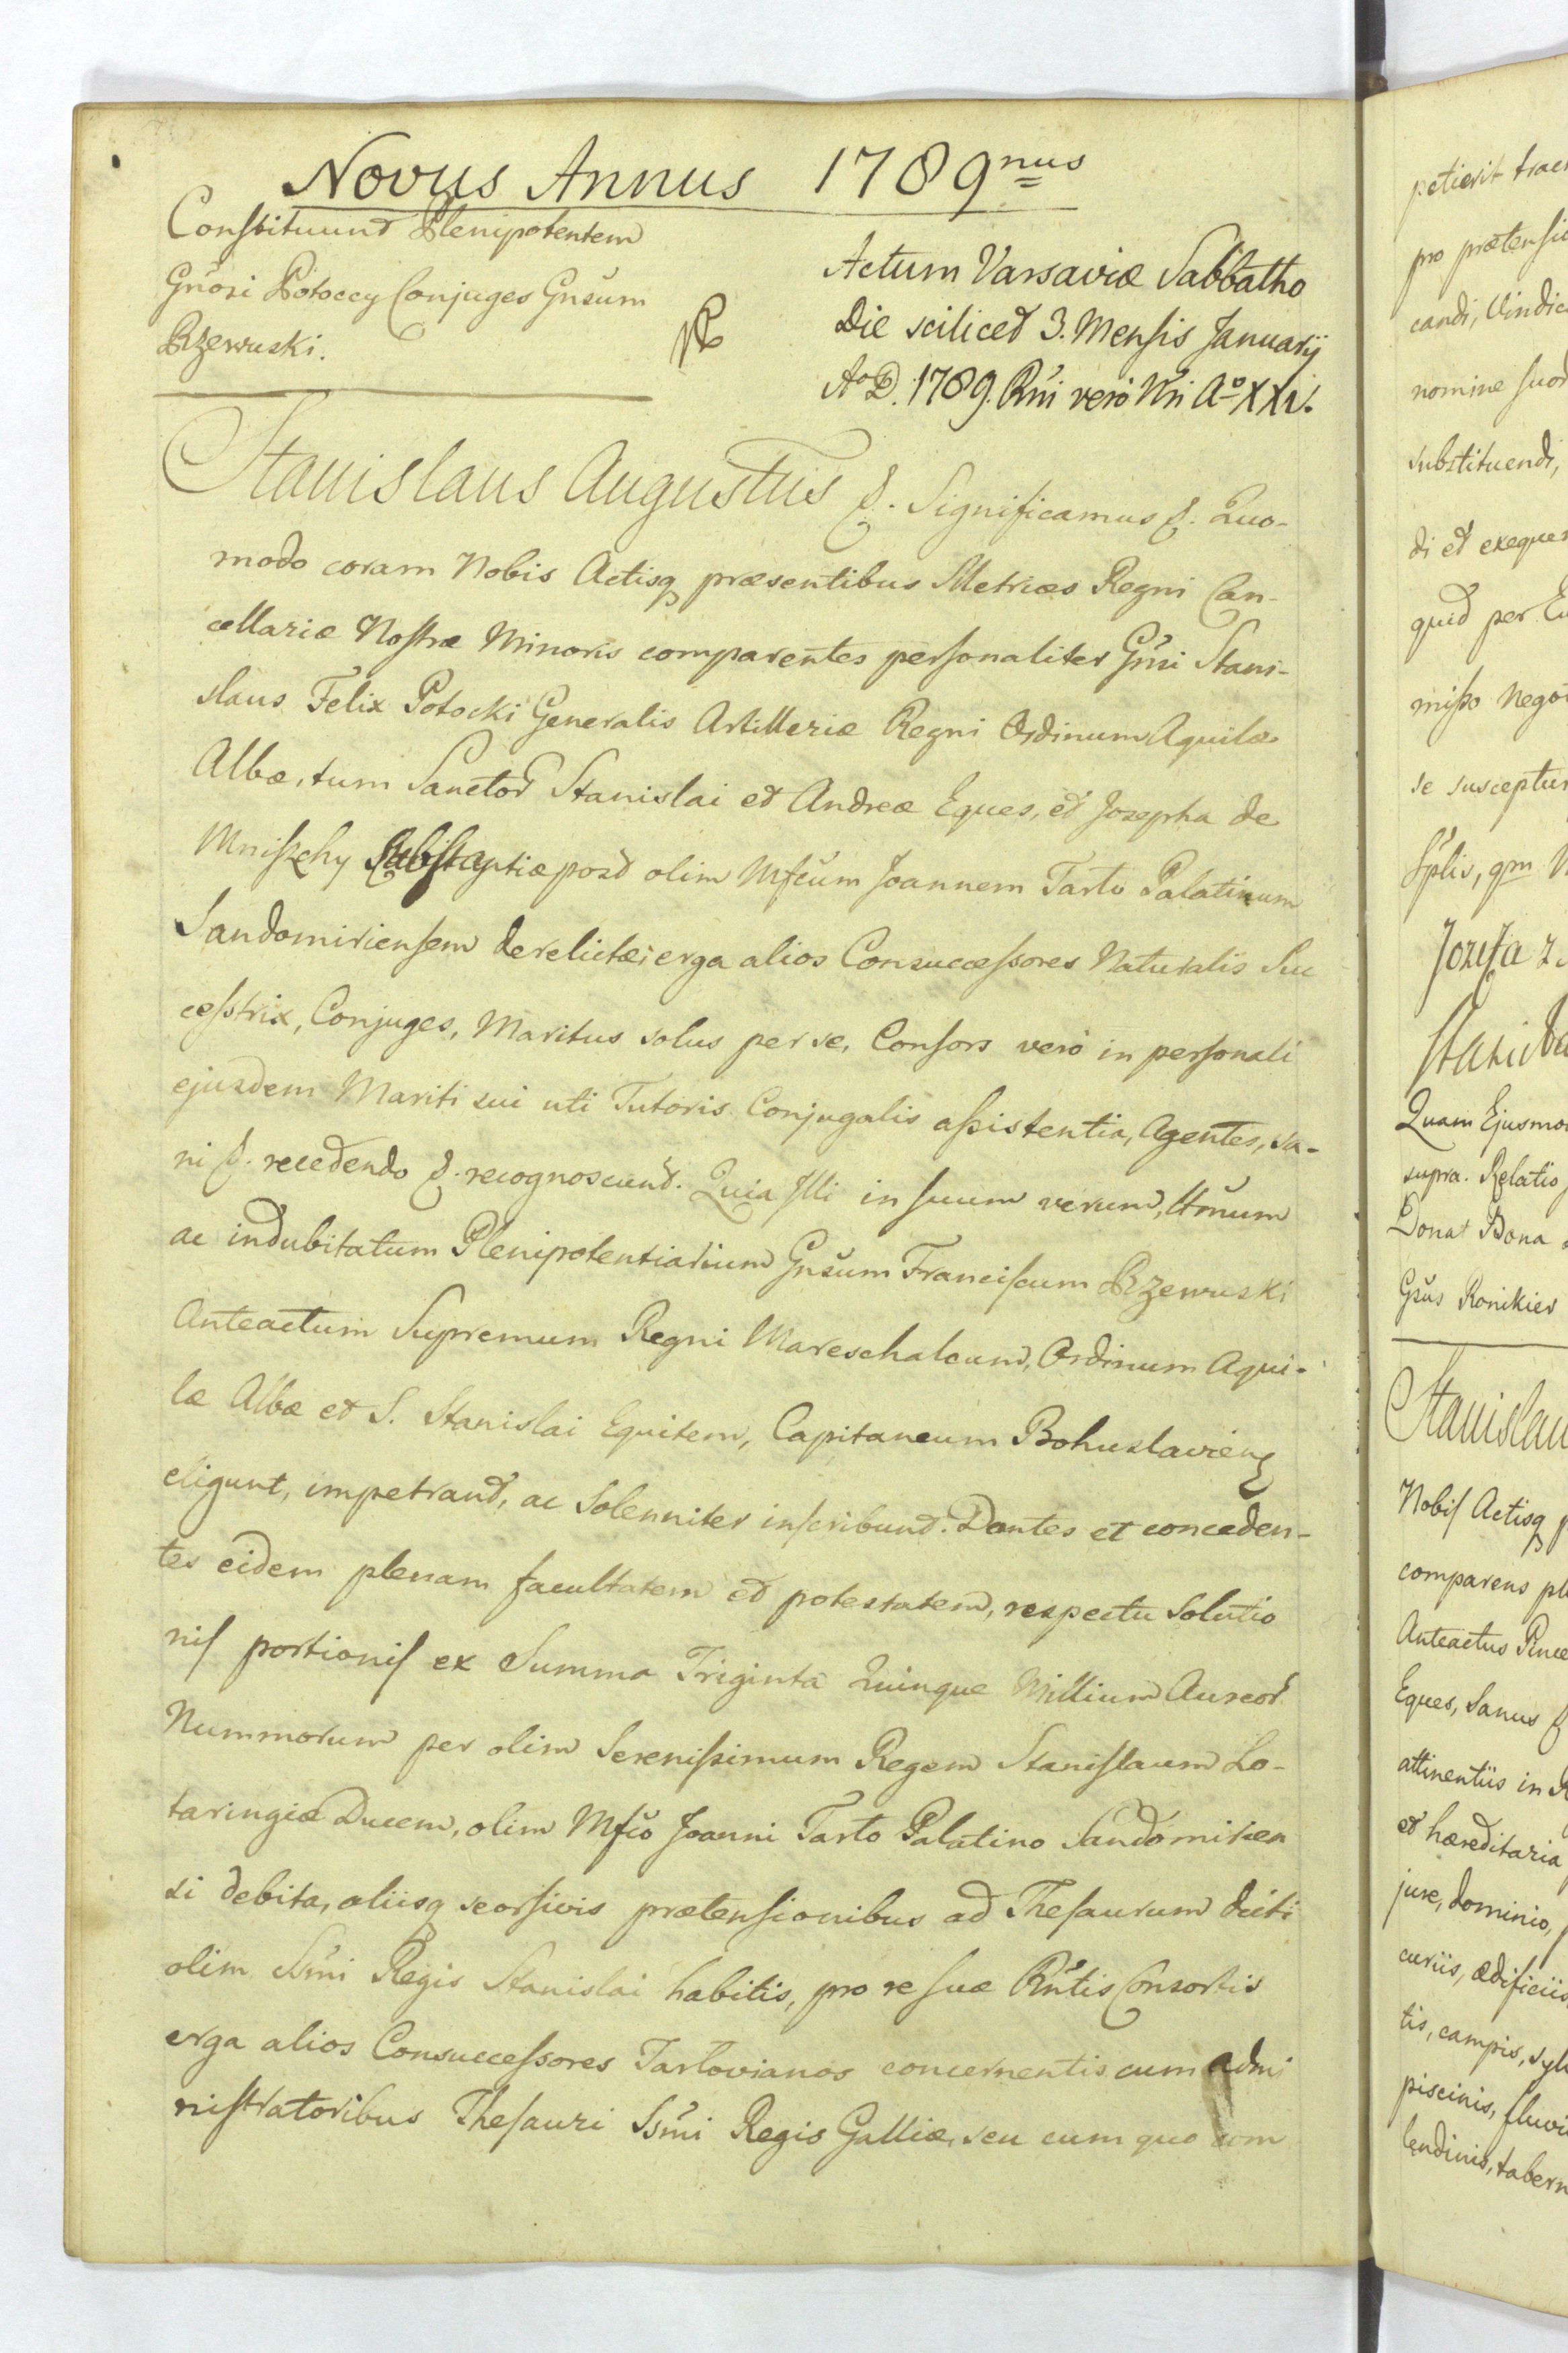 Novus Annus 1789nus
Constituunt Plenipotentem
Gnosi Potoccy Conjuges Gnsum
Rzewuski.
Actum Varsaviæ Sabbatho
Die scilicet 3. Mensis Januarij
Ao D. 1789. Rni vero Nri Ao XXV.
Stanislaus Augustus &. Significamus &. Quo-
modo coram Nobis Actisq præsentibus Metrices Regni Can-
cellariæ Nostræ Minoris comparentes personaliter Gnsi Stani-
slaus Felix Potocki Generalis Artilleriæ Regni Ordinum Aquilæ
Albæ, tum Sanctor Stanislai et Andreæ Eques, et Josepha de
Mniszchy Substantiæ post olim Mfcum Joannem Tarło Palatinum
Sandomiriensem derelictæ, erga alios Consuccessores Naturalis Suc
cestrix, Conjuges, Maritus solus per se, Consors vero in personali
ejusdem Mariti sui uti Tutoris Conjugalis assistentia, Agentes, sa-
ni &. recedendo &. recognoscunt. Quia Illi in suum verum, Ltmum
ac indubitatum Plenipotentiarium Gnsum Franciscum Rzewuski
Anteactum Supremum Regni Mareschalcum, Ordinum Aqui-
læ Albæ et S. Stanislai Equitem, Capitaneum Bohuslavien
eligunt, impetrand, ac Solenniter inscribunt. Dantes et conceden-
tes eidem plenam facultatem et potestatem, respectu Solutio
nis portionis ex Summa Triginta Quinque Millium Aureor
Nummorum per olim Serenissimum Regem Stanislaum Lo-
taringiæ Ducem, olim Mfco Joanni Tarło Palatino Sandomirien
si debita, aliisq seorsivis prætensionibus ad Thesaurum dicti
olim Ssmi Regis Stanislai habitis, pro re suæ Rntis Consortis
erga alios Consuccessores Tarłovianos concernentis cum admi
nistratoribus Thesauri Ssmi Regis Galliæ, seu cum quo com
petierit
pro
candi,
nomine
substituendi,
di et
quid per
misso
se
Splis, qm
Jozefa z
Quam
supra. Relatio
Donat Bona
Gsus Ronikier
Stanislau
Nobis Actisq
comparens
Anteactus
Eques, Sanus &
attinentiis in
et hæreditaria
jure, dominio,
curiis, ædificiis
tis, campis,
piscinis,